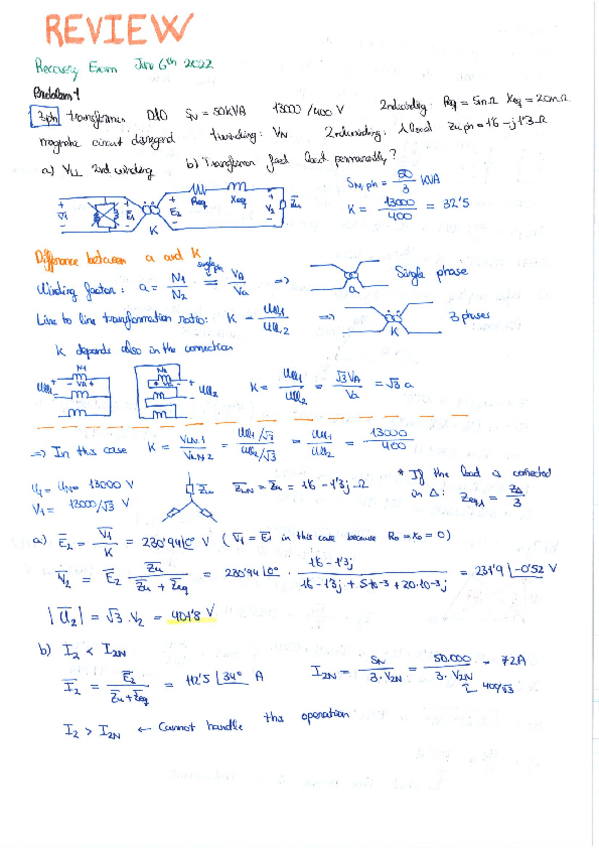 REVIEW
Recovery Exam Jun 6th 2022
Problem 1
3ph transformer D10 SN = 50kVA 13000/400 V 2ndwinding: Req = 5mΩ Xeq = 20mΩ
magnetic circuit disregard 1winding: VN 2ndwinding: λ load Zuph = 1'6 - j1'3 Ω
a) VLL 2nd winding b) Transformer feed load permanently?
+ V1 - + E1 - + E2 - Req Xeq + V2 - Zu
K
SN,ph = 50/3 kVA
K = 13000/400 = 32'5
Difference between a and K
Winding factor: a = N1/N2 = VA/Va => Single phase
single ph
a
Line to line transformation ratio: K = Ull1/Ull2 => 3 phases
K
K depends also in the connection
N1
Ull1 + VA - Ull2 K = Ull1/Ull2 = √3VA/Va = √3 a
=> In this case K = VLN1/VLN2 = Ull1/√3 / Ull2/√3 = Ull1/Ull2 = 13000/400
U1 = UN = 13000 V
V1 = 13000/√3 V
Zu
ZLN = Zu = 1'6 - 1'3j Ω
* If the load is connected
in Δ: Zeqλ = ZΔ/3
a) E2 = V1/K = 230'94∠0° V (V1 = E1 in this case because Ro = Xo = 0)
V2 = E2 Zu/(Zu + Zeq) = 230'94∠0° · (1'6 - 1'3j)/(1'6 - 1'3j + 5·10-3 + 20·10-3j) = 231'9∠-0'52 V
|U2| = √3 · V2 = 401'8 V
b) I2 < I2N
I2 = E2/(Zu + Zeq) = 112'5∠34° A
I2N = SN/(3·V2N) = 50.000/(3·V2N) = 72A
400/√3
I2 > I2N ← Cannot handle this operation